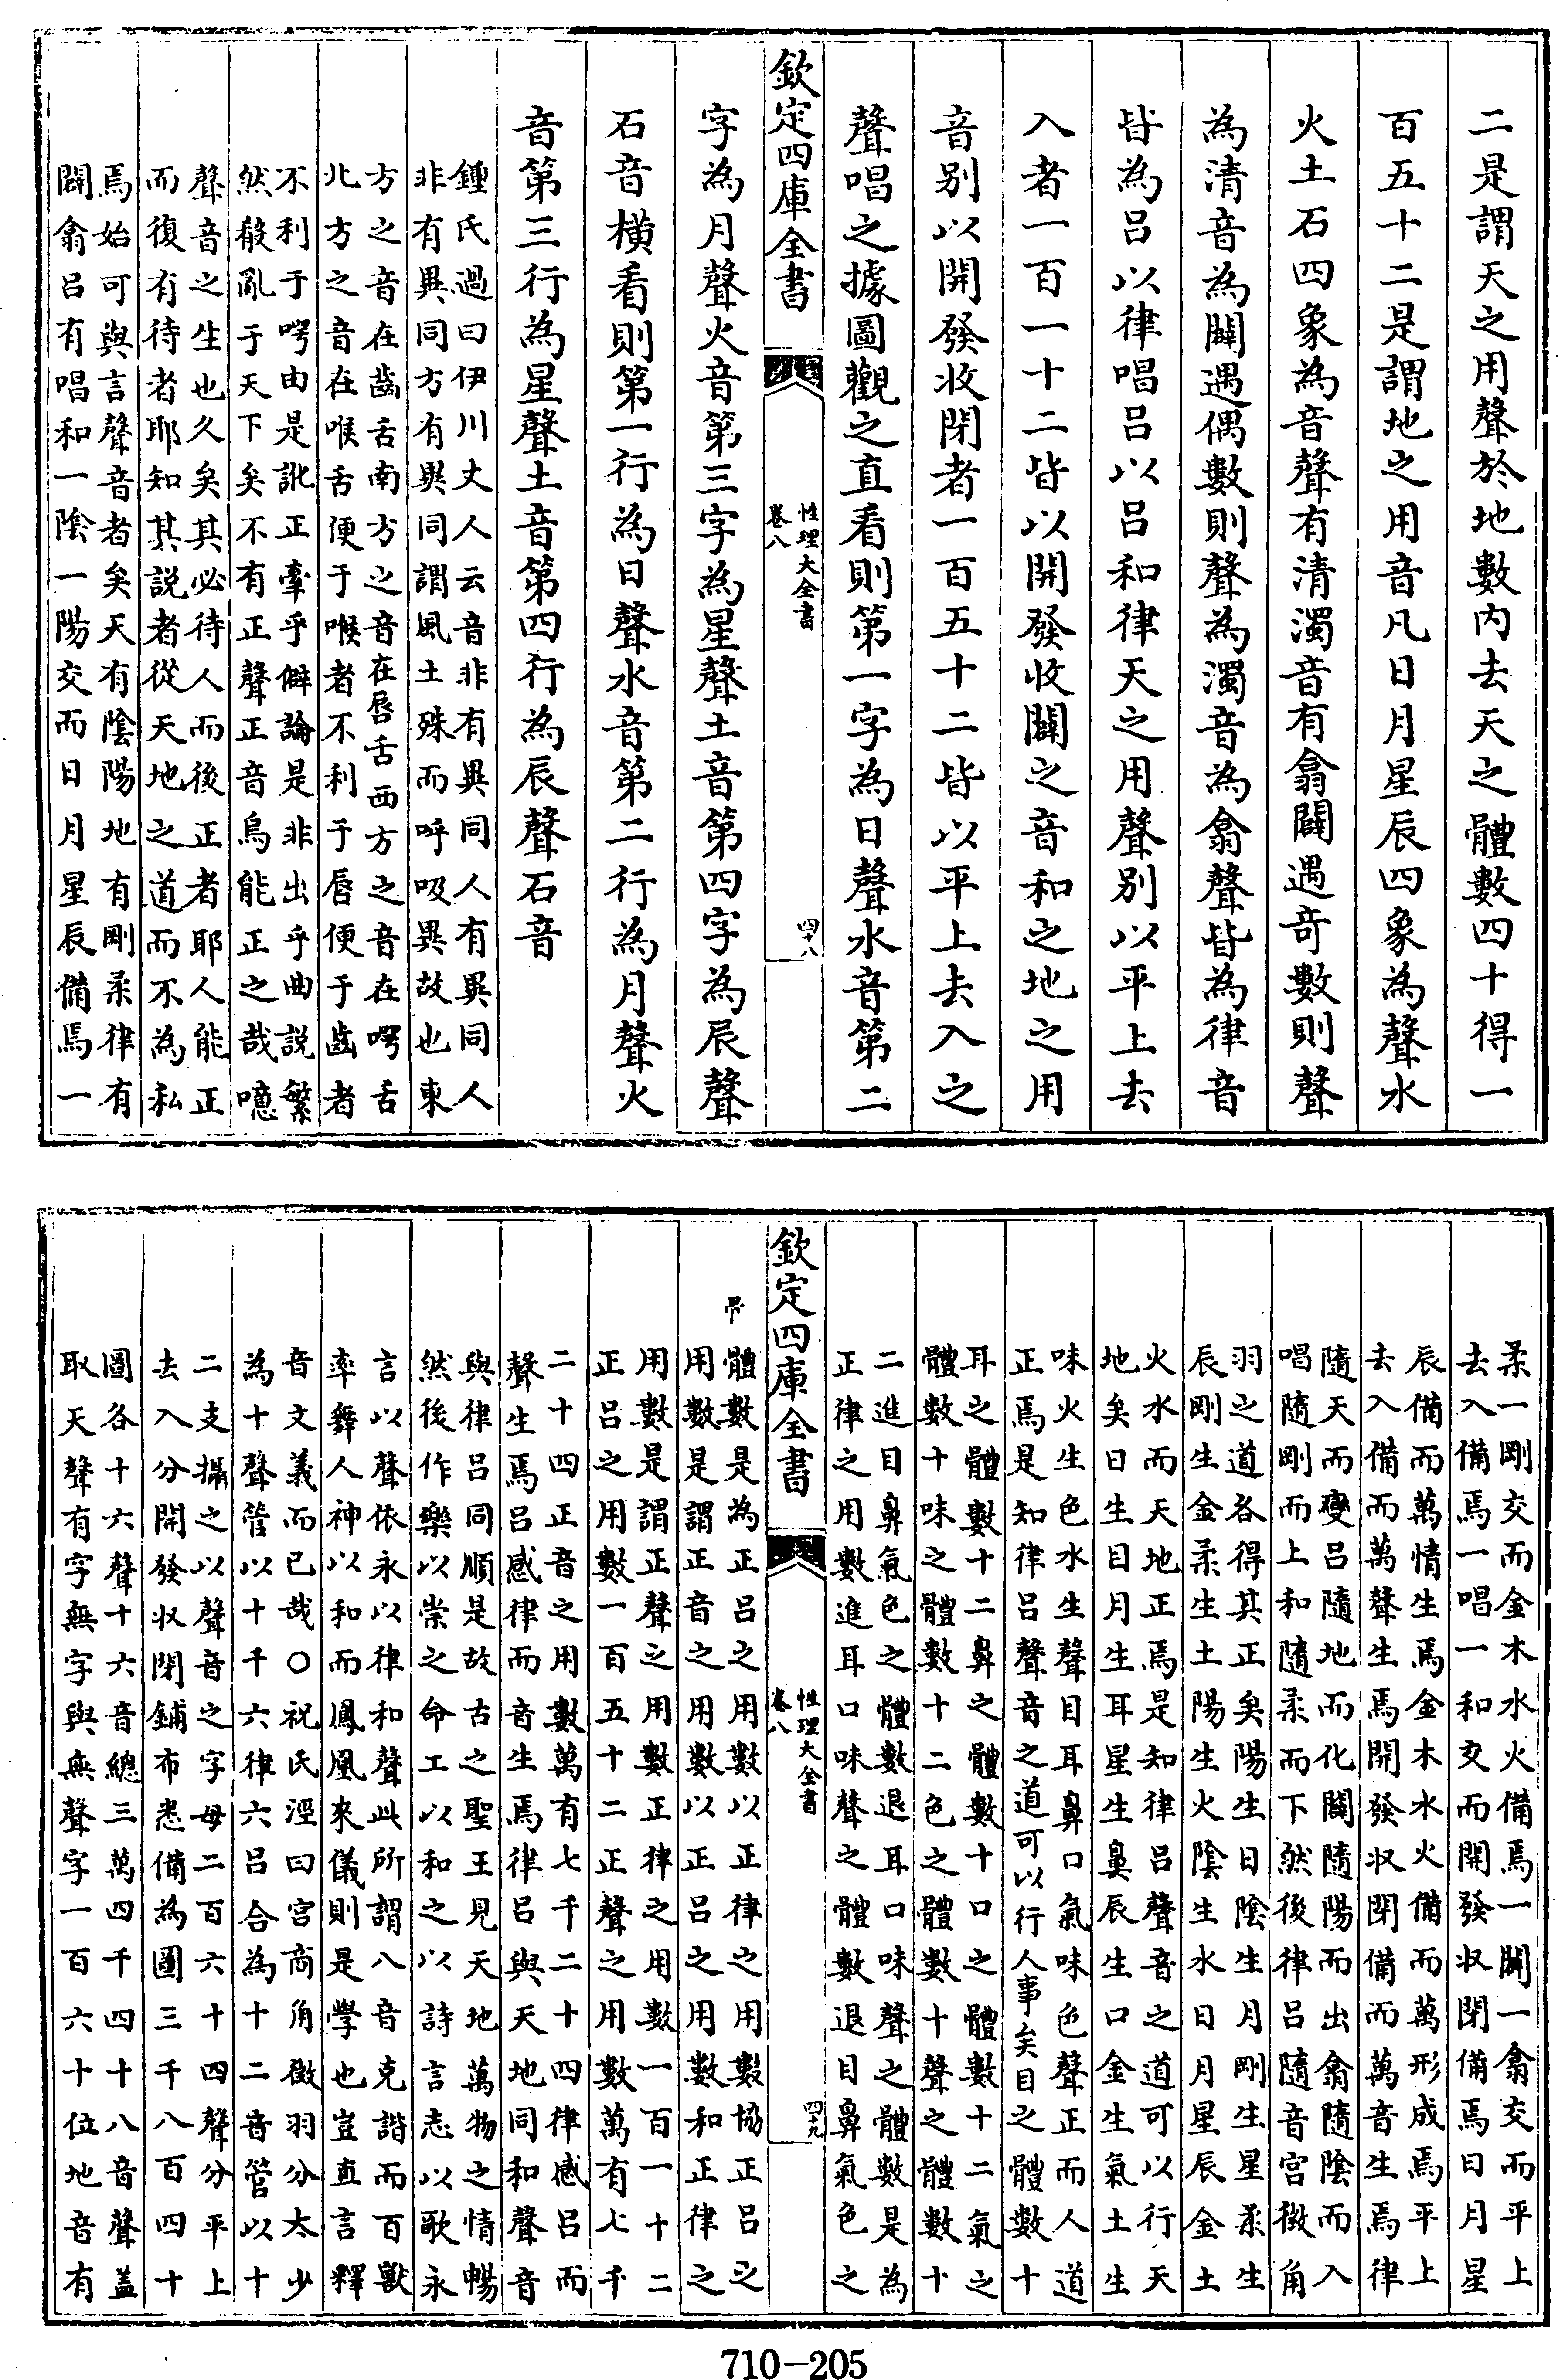 二是謂天之用聲於地數内去天之體數四十得一
百五十二是謂地之用音凡日月星辰四象為聲水
火土石四象為音聲有清濁音有翕闢遇竒數則聲
為清音為闢遇偶數則聲為濁音為翕聲皆為律音
皆為吕以律唱吕以吕和律天之用聲别以平上去
入者一百一十二皆以開發收閉之音和之地之用
音别以開發收閉者一百五十二皆以平上去入之
聲唱之據圖觀之直看則第一字為日聲水音第二
欽定四庫全書
性理大全書
卷八
四十八
字為月聲火音第三字為星聲土音第四字為辰聲
石音横看則第一行為日聲水音第二行為月聲火
音第三行為星聲土音第四行為辰聲石音
鍾氏過曰伊川丈人云音非有異同人有異同人
非有異同方有異同謂風土殊而呼吸異故也東
方之音在齒舌南方之音在唇舌西方之音在咢舌
北方之音在喉舌便于喉者不利于唇便于齒者
不利于咢由是訛正牽乎僻論是非出乎曲説繁
然殽亂于天下矣不有正聲正音烏能正之哉噫
聲音之生也久矣其必待人而後正者耶人能正
而復有待者耶知其説者從天地之道而不為私
焉始可與言聲音者矣天有陰陽地有剛柔律有
闢翕吕有唱和一陰一陽交而日月星辰備焉一
柔一剛交而金木水火備焉一闢一翕交而平上
去入備焉一唱一和交而開發收閉備焉日月星
辰備而萬情生焉金木水火備而萬形成焉平上
去入備而萬聲生焉開發收閉備而萬音生焉律
隨天而變吕隨地而化闢隨陽而出翕隨陰而入
唱隨剛而上和隨柔而下然後律吕隨音宫徵角
羽之道各得其正矣陽生日陰生月剛生星柔生
辰剛生金柔生土陽生火陰生水日月星辰金土
火水而天地正焉是知律吕聲音之道可以行天
地矣日生目月生耳星生鼻辰生口金生氣土生
味火生色水生聲目耳鼻口氣味色聲正而人道
正焉是知律吕聲音之道可以行人事矣目之體數十
耳之體數十二鼻之體數十口之體數十二氣之
體數十味之體數十二色之體數十聲之體數十
二進目鼻氣色之體數退耳口味聲之體數是為
正律之用數進耳口味聲之體數退目鼻氣色之
欽定四庫全書
性理大全書
卷八
四十九
體數是為正吕之用數以正律之用數協正吕之
用數是謂正音之用數以正吕之用數和正律之
用數是謂正聲之用數正律之用數一百一十二
正吕之用數一百五十二正聲之用數萬有七千
二十四正音之用數萬有七千二十四律感吕而
聲生焉吕感律而音生焉律吕與天地同和聲音
與律吕同順是故古之聖王見天地萬物之情暢
然後作樂以崇之命工以和之以詩言志以歌永
言以聲依永以律和聲此所謂八音克諧而百獸
率舞人神以和而鳳凰來儀則是學也豈直言釋
音文義而已哉○祝氏泌曰宫商角徵羽分太少
為十聲管以十干六律六吕合為十二音管以十
二支攝之以聲音之字母二百六十四聲分平上
去入分開發收閉鋪布悉備為圖三千八百四十
圖各十六聲十六音總三萬四千四十八音聲盖
取天聲有字無字與無聲字一百六十位地音有
710-205